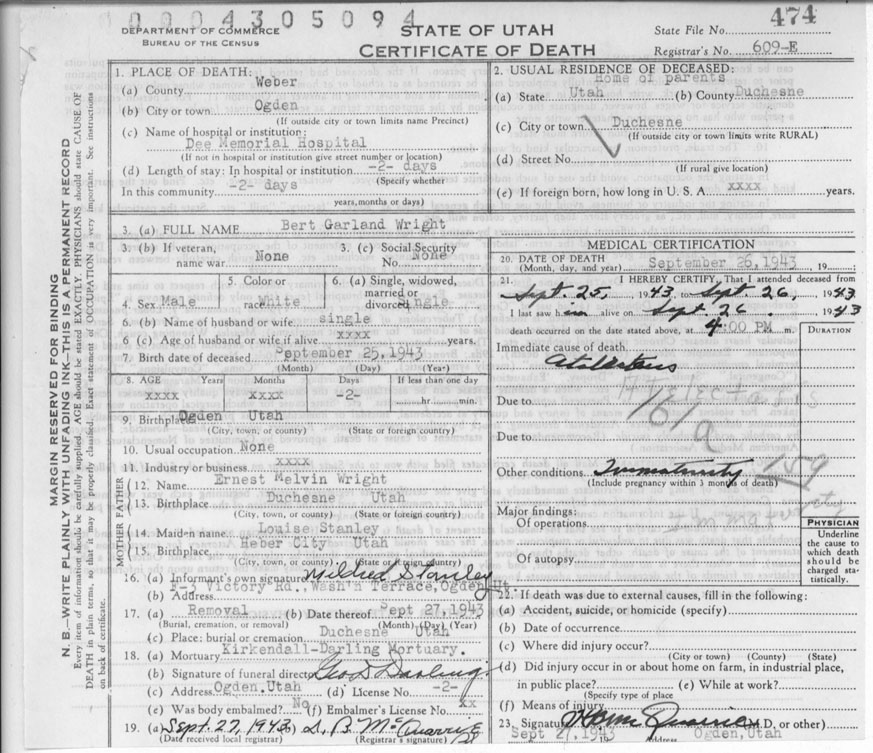 0 0 0 4 3 0 5 0 9 4
474
DEPARTMENT OF COMMERCE
BUREAU OF THE CENSUS
STATE OF UTAH
CERTIFICATE OF DEATH
State File No.
Registrar's No. 609-E
MARGIN RESERVED FOR BINDING
N. B.—WRITE PLAINLY WITH UNFADING INK—THIS IS A PERMANENT RECORD
Every item of information should be carefully supplied. AGE should be stated EXACTLY. PHYSICIANS should state CAUSE OF
DEATH in plain terms, so that it may be properly classified. Exact statement of OCCUPATION is very important. See instructions
on back of certificate.
1. PLACE OF DEATH:
(a) County Weber
(b) City or town Ogden
(If outside city or town limits name Precinct)
(c) Name of hospital or institution:
Dee Memorial Hospital
(If not in hospital or institution give street number or location)
(d) Length of stay: In hospital or institution -2- days
(Specify whether
In this community -2- days
years, months or days)
2. USUAL RESIDENCE OF DECEASED:
Home of parents
(a) State Utah (b) County Duchesne
(c) City or town Duchesne
(If outside city or town limits write RURAL)
(d) Street No.
(If rural give location)
(e) If foreign born, how long in U. S. A. xxxx years.
3. (a) FULL NAME Bert Garland Wright
3. (b) If veteran, name war None
3. (c) Social Security No. None
4. Sex Male
5. Color or race White
6. (a) Single, widowed, married or divorced single
6. (b) Name of husband or wife single
6. (c) Age of husband or wife if alive xxxx years.
7. Birth date of deceased September 25, 1943
(Month) (Day) (Year)
8. AGE Years Months Days If less than one day
xxxx xxxx -2- hr. min.
9. Birthplace Ogden Utah
(City, town, or county) (State or foreign country)
10. Usual occupation None
11. Industry or business xxxx
FATHER
12. Name Ernest Melvin Wright
13. Birthplace Duchesne Utah
(City, town, or county) (State or foreign country)
MOTHER
14. Maiden name Louise Stanley
15. Birthplace Heber City Utah
(City, town, or county) (State or foreign country)
16. (a) Informant's own signature Mildred Stanley
(b) Address Victory Rd., Wash'n Terrace, Ogden Ut
17. (a) Removal (b) Date thereof Sept 27, 1943
(Burial, cremation, or removal) (Month) (Day) (Year)
(c) Place: burial or cremation Duchesne Utah
18. (a) Mortuary Kirkendall-Darling Mortuary.
(b) Signature of funeral director Geo D Darling
(c) Address Ogden, Utah (d) License No. -2-
(e) Was body embalmed? No (f) Embalmer's License No. xx
19. (a) Sept. 27, 1943
(Date received local registrar) (Registrar's signature)
MEDICAL CERTIFICATION
20. DATE OF DEATH
(Month, day, and year) September 26, 1943 19
21. I HEREBY CERTIFY, That I attended deceased from
Sept. 25, 1943 to Sept. 26, 1943
I last saw him alive on Sept. 26 1943
death occurred on the date stated above, at 4:00 PM m.
DURATION
Immediate cause of death
Atelectasis
Due to Atelectasis
161a
Due to
Other conditions Immaturity 159
(Include pregnancy within 3 months of death)
Major findings:
Of operations Immaturity
Of autopsy
PHYSICIAN
Underline
the cause to
which death
should be
charged sta-
tistically.
22. If death was due to external causes, fill in the following:
(a) Accident, suicide, or homicide (specify)
(b) Date of occurrence
(c) Where did injury occur?
(City or town) (County) (State)
(d) Did injury occur in or about home on farm, in industrial place,
in public place? (e) While at work?
(Specify type of place
(f) Means of injury
23. Signature (M.D. or other)
Sept 27, 1943 Address Ogden, Utah